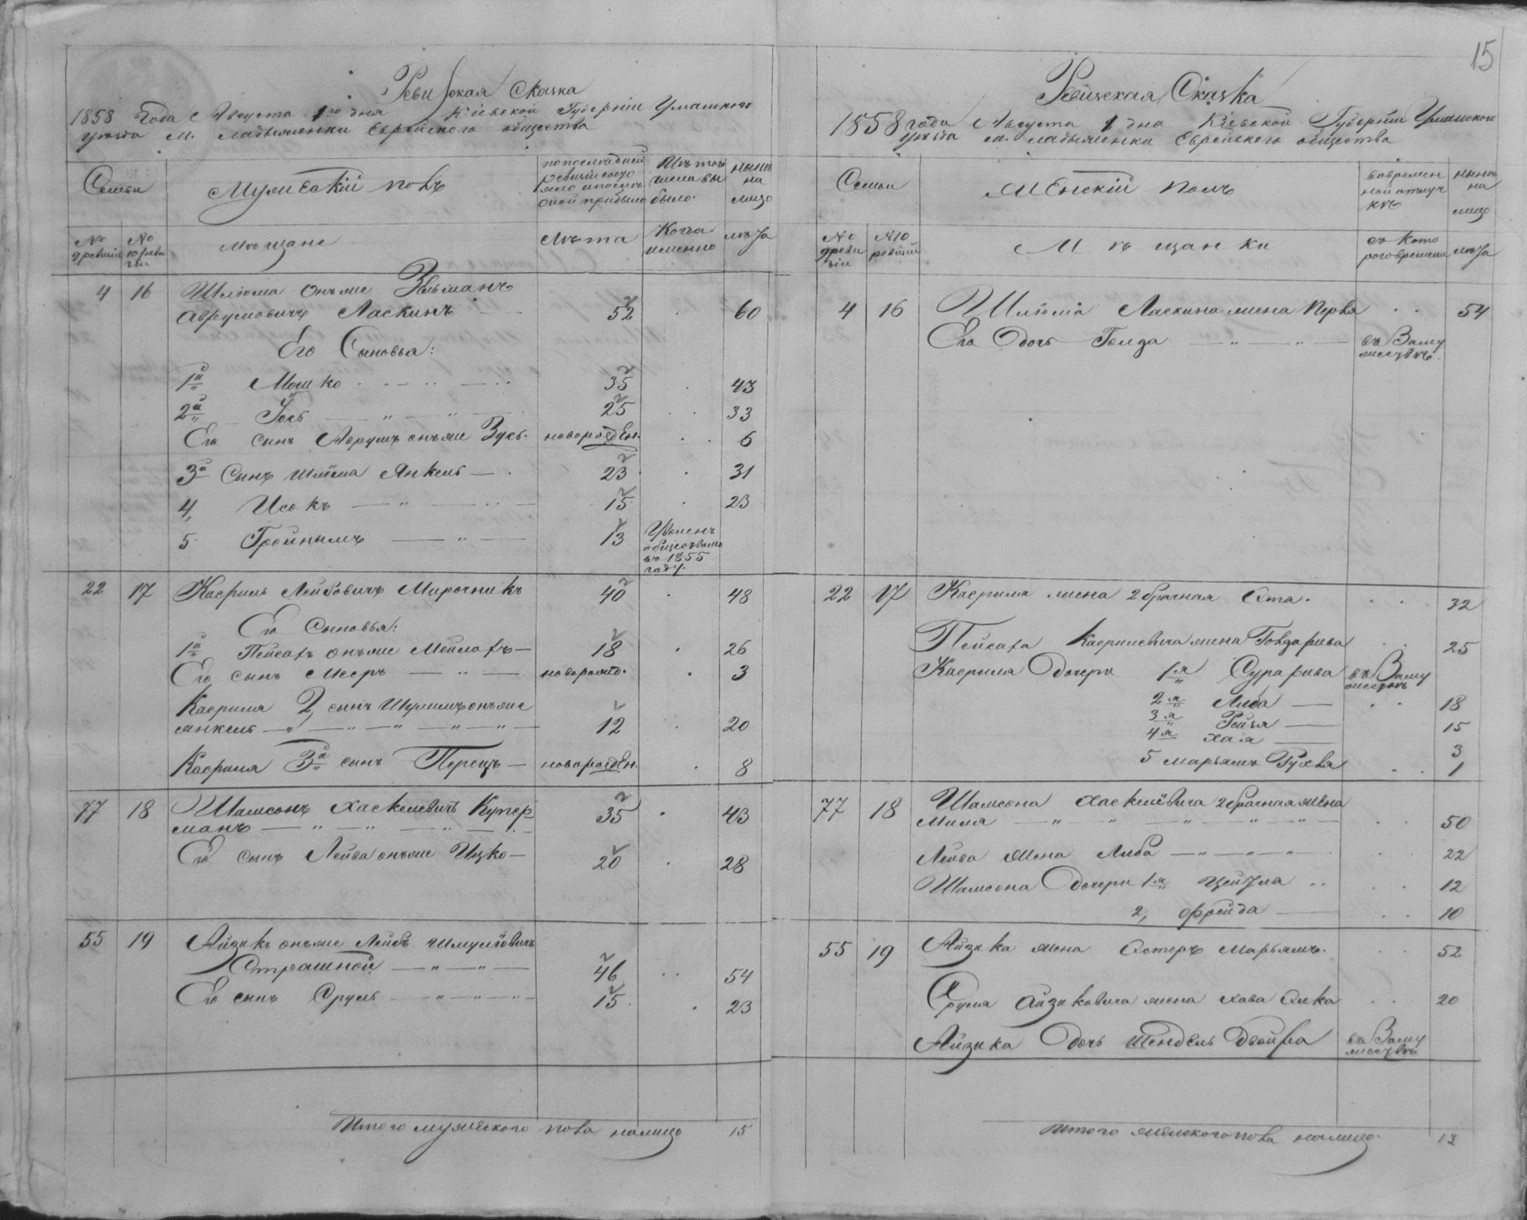 15
Ревизская Сказка
1858 года Августа 1го дня Кіевской Губерніи Уманскаго
уѣзда м. Ладыженки Еврейскаго общества
Семьи
Мужескій полъ
по последней ревизіи состояло и после оной прибыло
Изъ того числа выбыло
ныне на лицо
№ 9 ревизіи
№ 10 ревизіи
мѣщане
Лѣта
Когда именно
лѣта
4 16 Шлiома онъже Зельманъ
Аврумовичъ Ласкинъ 52 60
Его Сыновья:
1й Мошко 35 43
2й Iось 25 33
Его сынъ Аврумъ онъже Зусь новорожден. 6
3й Сынъ Шлiома Янкель 23 31
4, Исокъ 15 23
5 Гройнымъ 13 Уволенъ
обществомъ
въ 1855
году
22 17 Касриль Лейбовичъ Мирочникъ 40 48
Его Сыновья:
1й Пейсахъ онъже Мейлахъ 18 26
Его сынъ Мееръ новорожд. 3
Касриля 2 сынъ Шулимъ онъже
Янкель 12 20
Касриля 3й сынъ Перецъ новорожден. 8
77 18 Шамсонъ Хаскелевичъ Купер
манъ 35 43
Его сынъ Лейба онъже Ицко 20 28
55 19 Айзикъ онъже Лейбъ Шмулевичъ
Страшной 46 54
Его сынъ Сруль 15 23
Итого мужескаго пола налицо 15
Ревизская Сказка
1858 года Августа 1 дня Кіевской Губерніи Уманскаго
уѣзда м. Ладыженки Еврейскаго общества
Семьи
Женскій полъ
во временной отлучкѣ
ныне на лицо
№ 9 ревизіи
№ 10 ревизіи
Мѣщанки
съ которого времени
лѣта
4 16 Шлiома Ласкина жена Перля 54
Его Дочь Голда въ Заму
жествѣ
22 17 Касриля жена 2 брачная Эта. 32
Пейсаха Касрилевича жена Голдаривка 25
Касриля Дочери 1я Сураривка въ Заму
жествѣ
2я Либа 18
3я Рейзя 15
4я хая 3
5 Марьямъ Рухля 1
77 18 Шамсона Хаскелевича 2 брачная жена
Миля 50
Лейба Жена Либа 22
Шамсона Дочери 1я Цейтля 12
2, Фрейда 10
55 19 Айзика жена Эстеръ Марьямъ. 52
Сруля Айзиковича жена Хава Элка 20
Айзика Дочь Шендель Двойра въ Заму
жествѣ
Итого женскаго пола налицо. 12